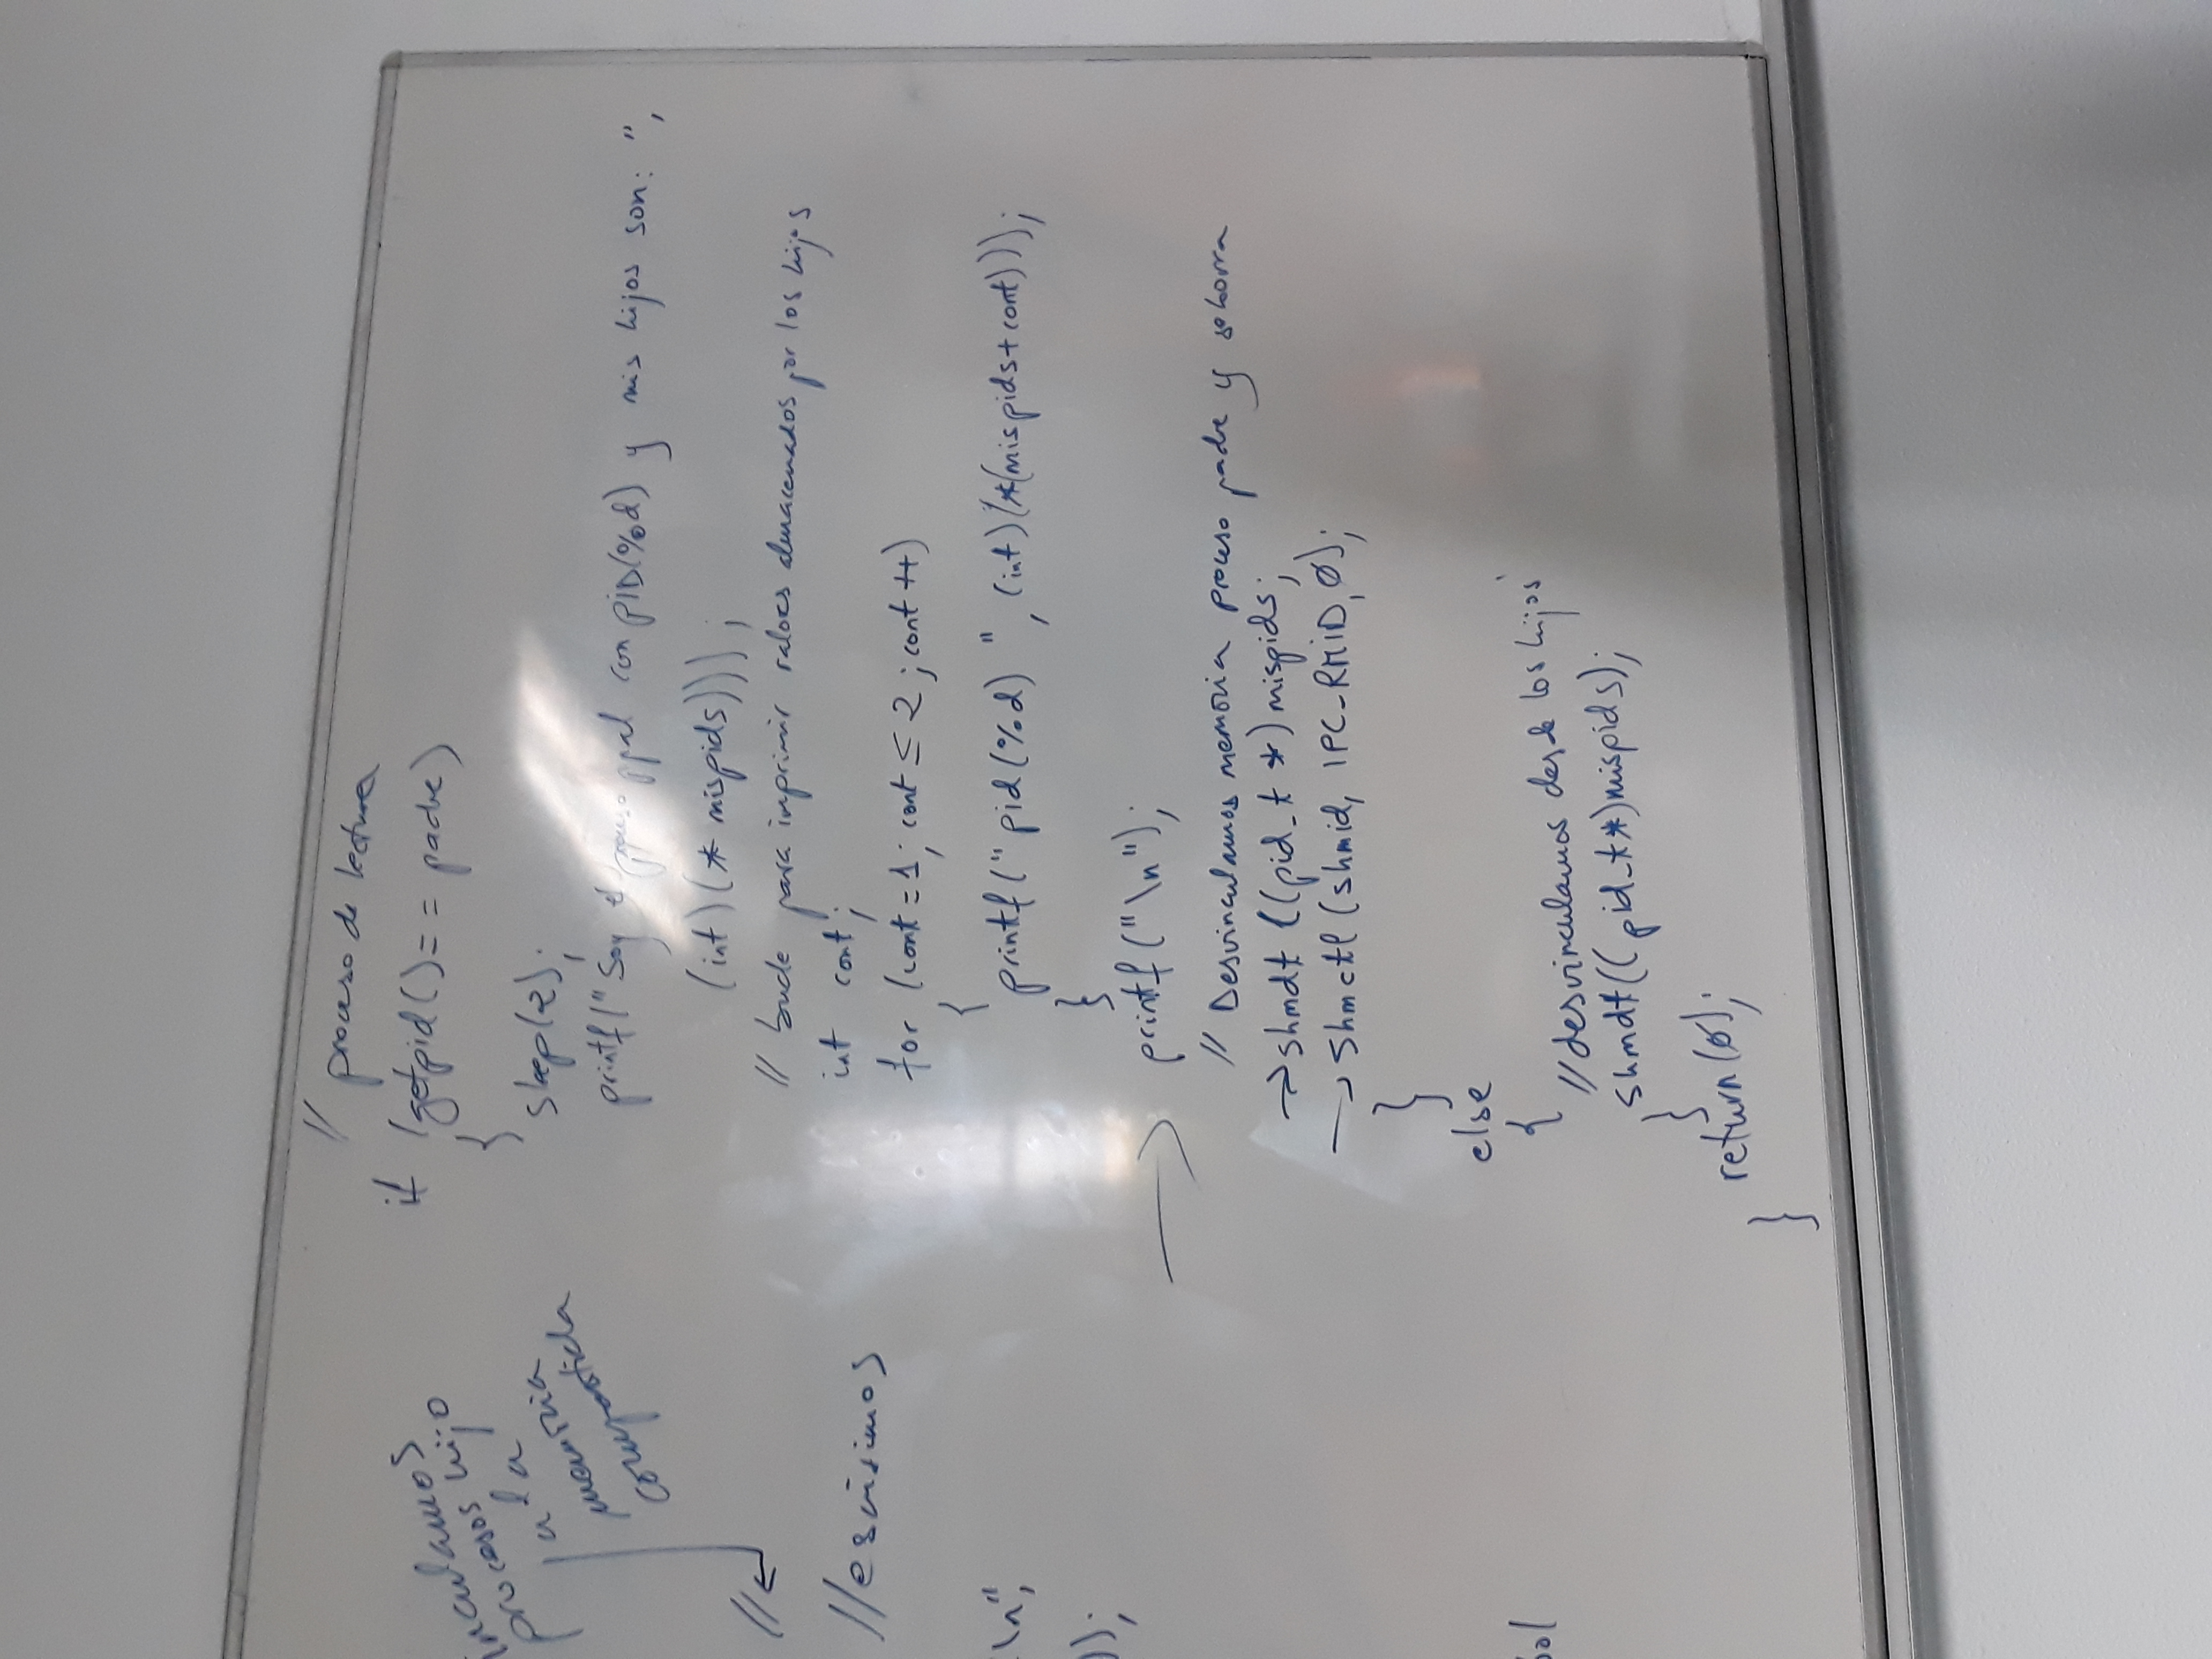 inculamos
procesos hijo
a la
memoria
compartida
//←
//escribimos
\n",
));
// proceso de lectura
if (getpid()== padre)
{
sleep(2);
printf("Soy el proceso ppal con PID(%d) y mis hijos son: ",
(int)(* mispids)));
// bucle para imprimir valores almacenados por los hijos
int cont;
for (cont=1; cont ≤ 2; cont++)
{
printf(" pid(%d) ", (int)(*(mispids+cont)));
}
→ printf("\n");
// Desvinculamos memoria proceso padre y se borra
→ shmdt ((pid_t *) mispids;
→ Shmctl (shmid, IPC_RMID, 0);
}
else
{
//desvinculamos desde los hijos
shmdt((pid_t*)mispids);
}
return(0);
}